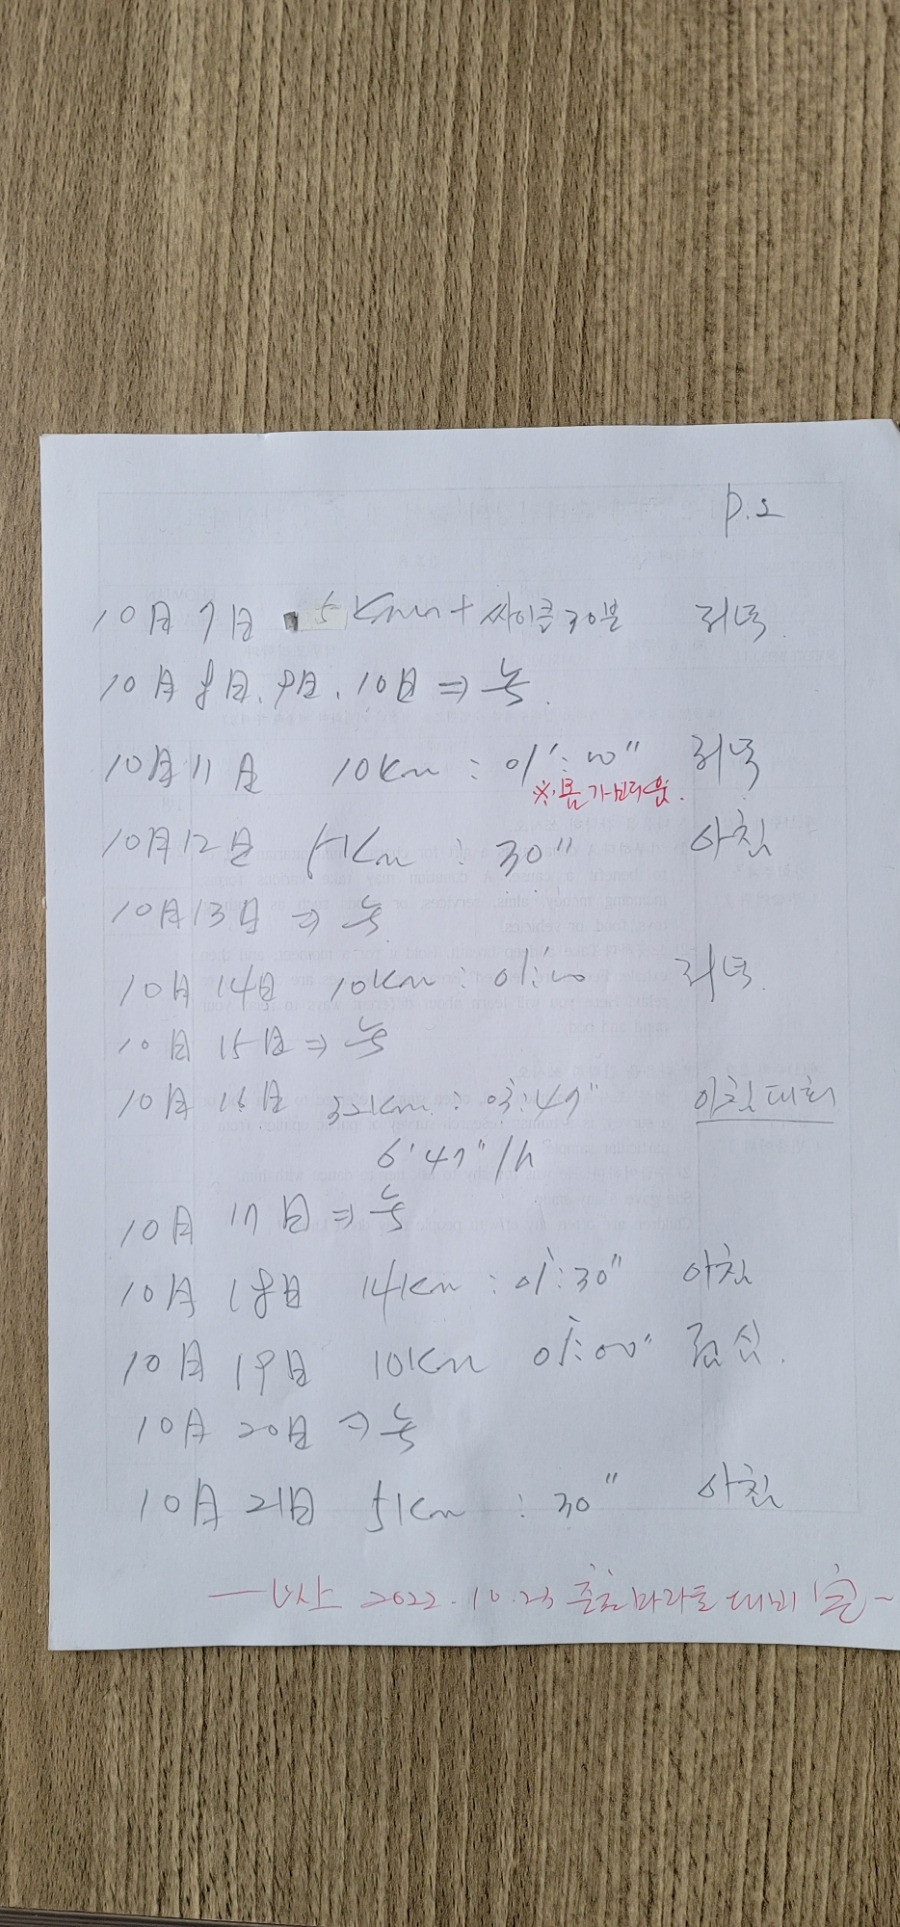 P.2
10月 7日 5Km + 싸이클 30분 저녁
10月 8日. 9日. 10日 ⇒ 놋.
10月 11日 10Km : 01':00" 저녁
※ 몸 가벼움.
10月 12日 5Km : 30" 아침
10月 13日 ⇒ 놋.
10月 14日 10Km : 01':00 저녁
10月 15日 ⇒ 놋
10月 16日 32Km : 03':47" 아침 대회
6'47"/h
10月 17日 ⇒ 놋
10月 18日 14Km : 01':30" 아침
10月 19日 10Km 01':00" 점심.
10月 20日 ⇒ 놋
10月 21日 5Km : 30" 아침
— 이상 2022.10.23 춘천마라톤 대비 훈 ~